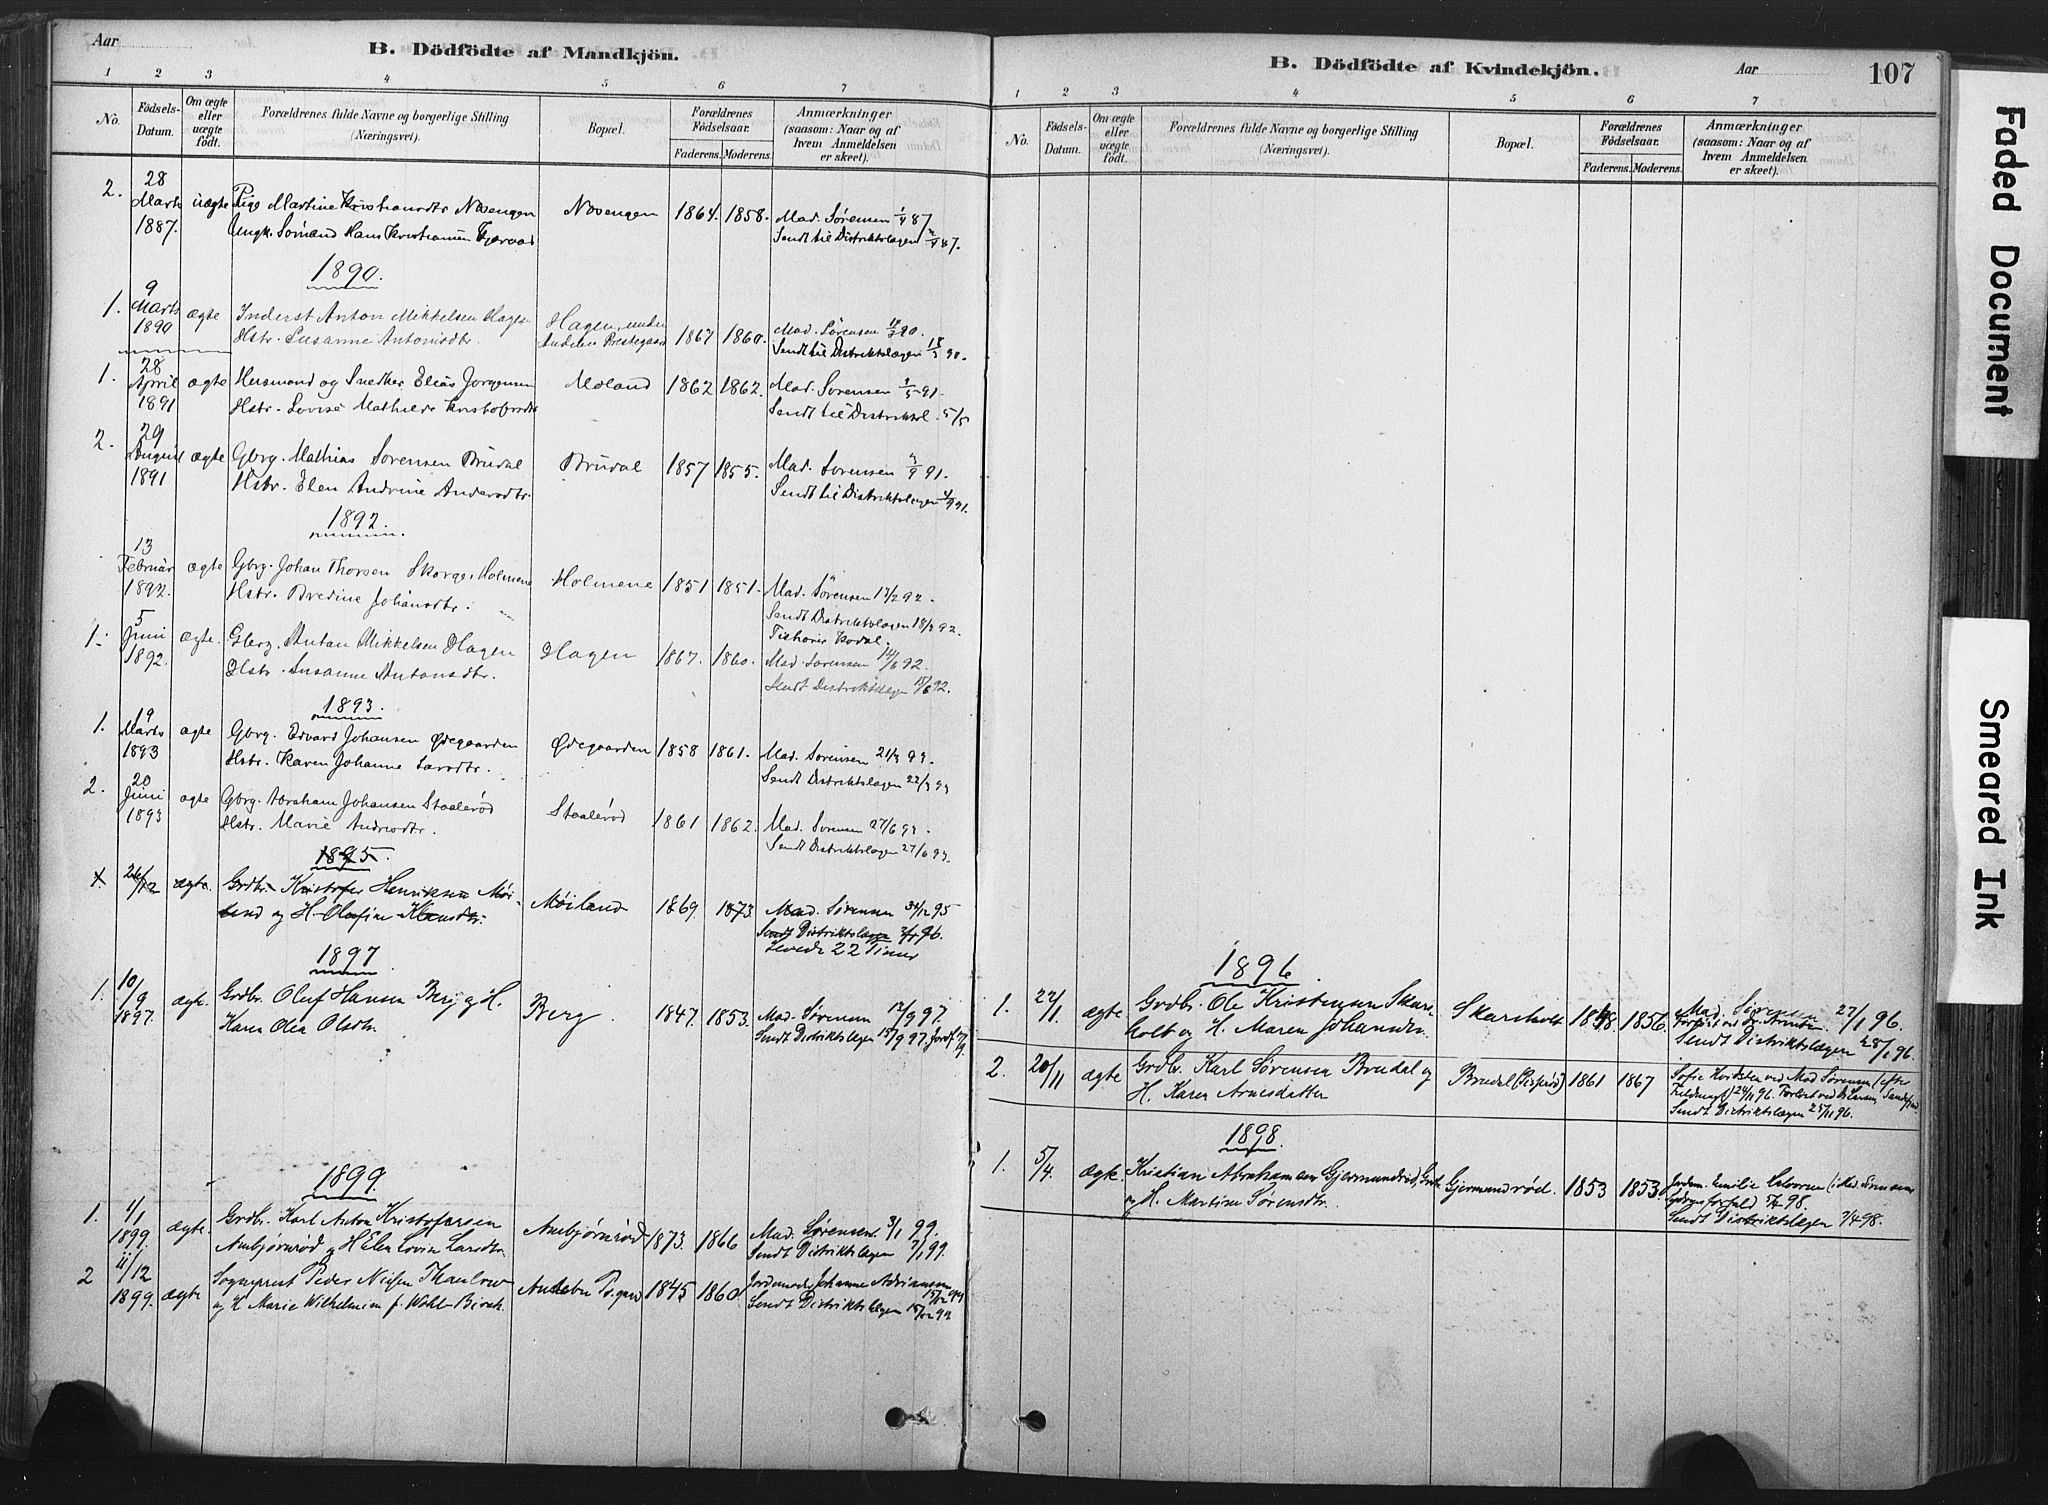 Aar
B. Dödfödte af Mandkjön.
1 2 3 4 5 6 7
No.
Födsels-Datum.
Om ægte eller uægte födt.
Forældrenes fulde Navne og borgerlige Stilling (Næringsvei).
Bopæl.
Forældrenes Födselsaar.
Faderens. Moderens.
Anmærkninger (saasom: Naar og af hvem Anmeldelsen er skeet).
2. 28 Marts 1887. uægte Pige Martine Kristiansdtr Nøsengen Nøsengen 1864. 1858. Mad. Sørensen 1/4 87
Ungk. Sømand Hans Kristiansen Sendt til Distriktslægen 2/4 87.
1890.
1. 9 Marts 1890 ægte Inderst Anton Mikkelsen Hagen Hagen, under 1867 1860. Mad. Sørensen
Hstr. Susanne Antonisdtr. Sendt til Distriktslægen 18/3 90.
1. 28 April 1891 ægte Huusmand og Snedker Elias Jørgensen Møland 1862 1862. Mad. Sørensen 1/5 91.
Hstr. Lovise Mathilde Kristofersdtr Sendt til Distriktsl. 5/5
2. 29 August 1891 ægte Gbrg. Mathias Sørensen Brudal Brudal 1857 1855. Mad. Sørensen 2/9 91.
Hstr. Elen Andrine Andersdtr. Sendt til Distriktslægen 4/9 91.
1892.
13 Februar 1892. ægte Gbrg. Johan Thorsen Skorge, Holmene Holmene 1851 1851. Mad. Sørensen 17/2 92.
Hstr. Bredine Johansdtr. Sendt Distriktslægen 18/2 92.
1. 5 Juni 1892. ægte. Gbrg. Anton Mikkelsen Hagen Hagen 1867. 1860. Mad. Sørensen 14/6 92.
Hstr. Susanne Antonsdtr. Sendt Distriktslægen 15/6 92.
1893.
1. 19 Marts 1893 ægte Gbrg. Edvard Johansen Ødegaarden Ødegaarden 1858 1861. Mad. Sørensen 21/3 93.
Hstr. Karen Johanne Larsdtr. Sendt Distriktslægen 22/3 93
2. 20 Juni 1893 ægte Gbrg. Abraham Johansen Staalerød Staalerød 1861 1862. Mad. Sørensen 27/6 93.
Hstr. Marie Andersdtr. Sendt Distriktslægen 27/6 93.
1895.
1. 26/12 ægte. Grdbr. Kristofer Henriksen Møi- Møiland 1869. 1873. Mad. Sørensen 31/12 95
land og H. Olufine Sendt Distriktslægen 2/1 96.
Levede 22 Timer
1897
1. 10/9 1897. ægte. Grdbr. Oluf Hansen Berg og H. Berg 1847. 1853. Mad. Sørensen 12/9 97
Karen Olea Olsdtr. Sendt Distriktslægen 15/9 97.
1899.
1. 4/1 1899. ægte. Grdbr. Karl Anton Kristofersen Ambjørnrød 1873. 1866 Mad. Sørensen 3/1 99.
Ambjørnrød og H Elen Lovise Larsdtr. Sendt Distriktslægen 7/1 99.
2 11/12 1899. ægte Sogneprest Peder Nielsen Thaulow Andebu 1845 1860 Jordemoder Johanne Adriansen 15/12 99
og H Marie Wilhelmine f. Wohl Birch. Sendt Distriktslægen 15/12 99
B. Dödfödte af Kvindekjön.
Aar
107
1 2 3 4 5 6 7
No.
Födsels-Datum.
Om ægte eller uægte födt.
Forældrenes fulde Navne og borgerlige Stilling (Næringsvei).
Bopæl.
Forældrenes Födselsaar.
Faderens. Moderens.
Anmærkninger (saasom: Naar og af hvem Anmeldelsen er skeet).
1896.
1. 22/1. ægte Grdbr. Ole Kristensen Skars- Skarsholt 1848 1856. Mad. Sørensen 27/1 96.
holt og H. Maren Johansdtr. Sendt Distriktslægen 28/1 96.
2. 20/11 ægte Grdbr. Karl Sørensen Brudal og Brudal 1861 1867 Sofie ved Mad Sørensen (efter
H. Karen Arnesdatter 24/11 96.
Sendt Distriktslægen 25/11 96.
1898.
1. 5/4. ægte. Kristian Abrahamsen Gjermundrød, Gjermundrød. 1853 1853 Jordem. Emilie
og H. Martine Sørensdtr. 98.
Sendt Distriktslægen 7/4 98.
Faded Document
Smeared Ink